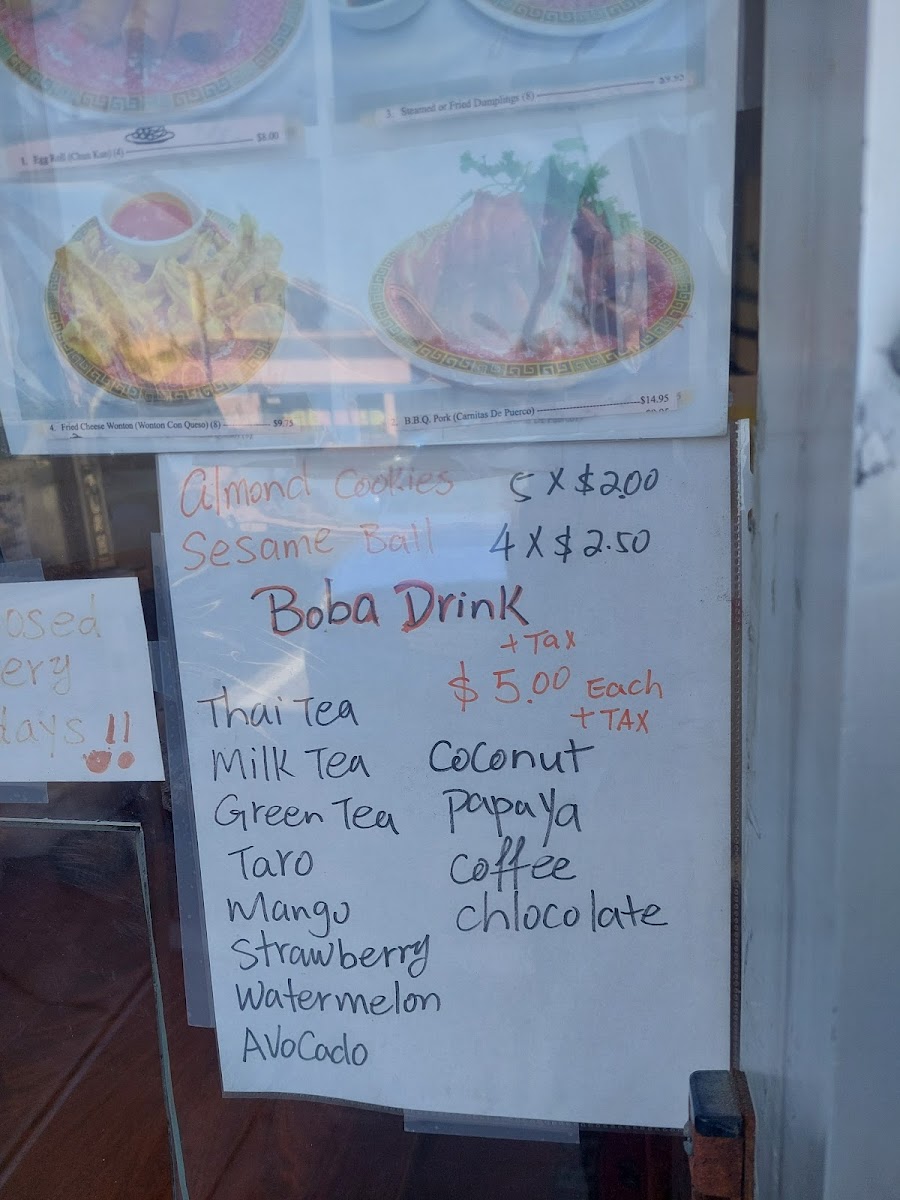 1. Egg Roll (Chun Kun) (4) $8.00
3. Steamed or Fried Dumplings (8) $9.95
4. Fried Cheese Wonton (Wonton Con Queso) (8) $9.75
B.B.Q. Pork (Carnitas De Puerco) $14.95
Almond Cookies 5 X $2.00
Sesame Ball 4 X $2.50
Boba Drink
+ Tax
$5.00 Each
+ TAX
Thai Tea
Milk Tea
Green Tea
Taro
Mango
Strawberry
Watermelon
Avocado
Coconut
Papaya
Coffee
Chlocolate
osed
ery
days !!